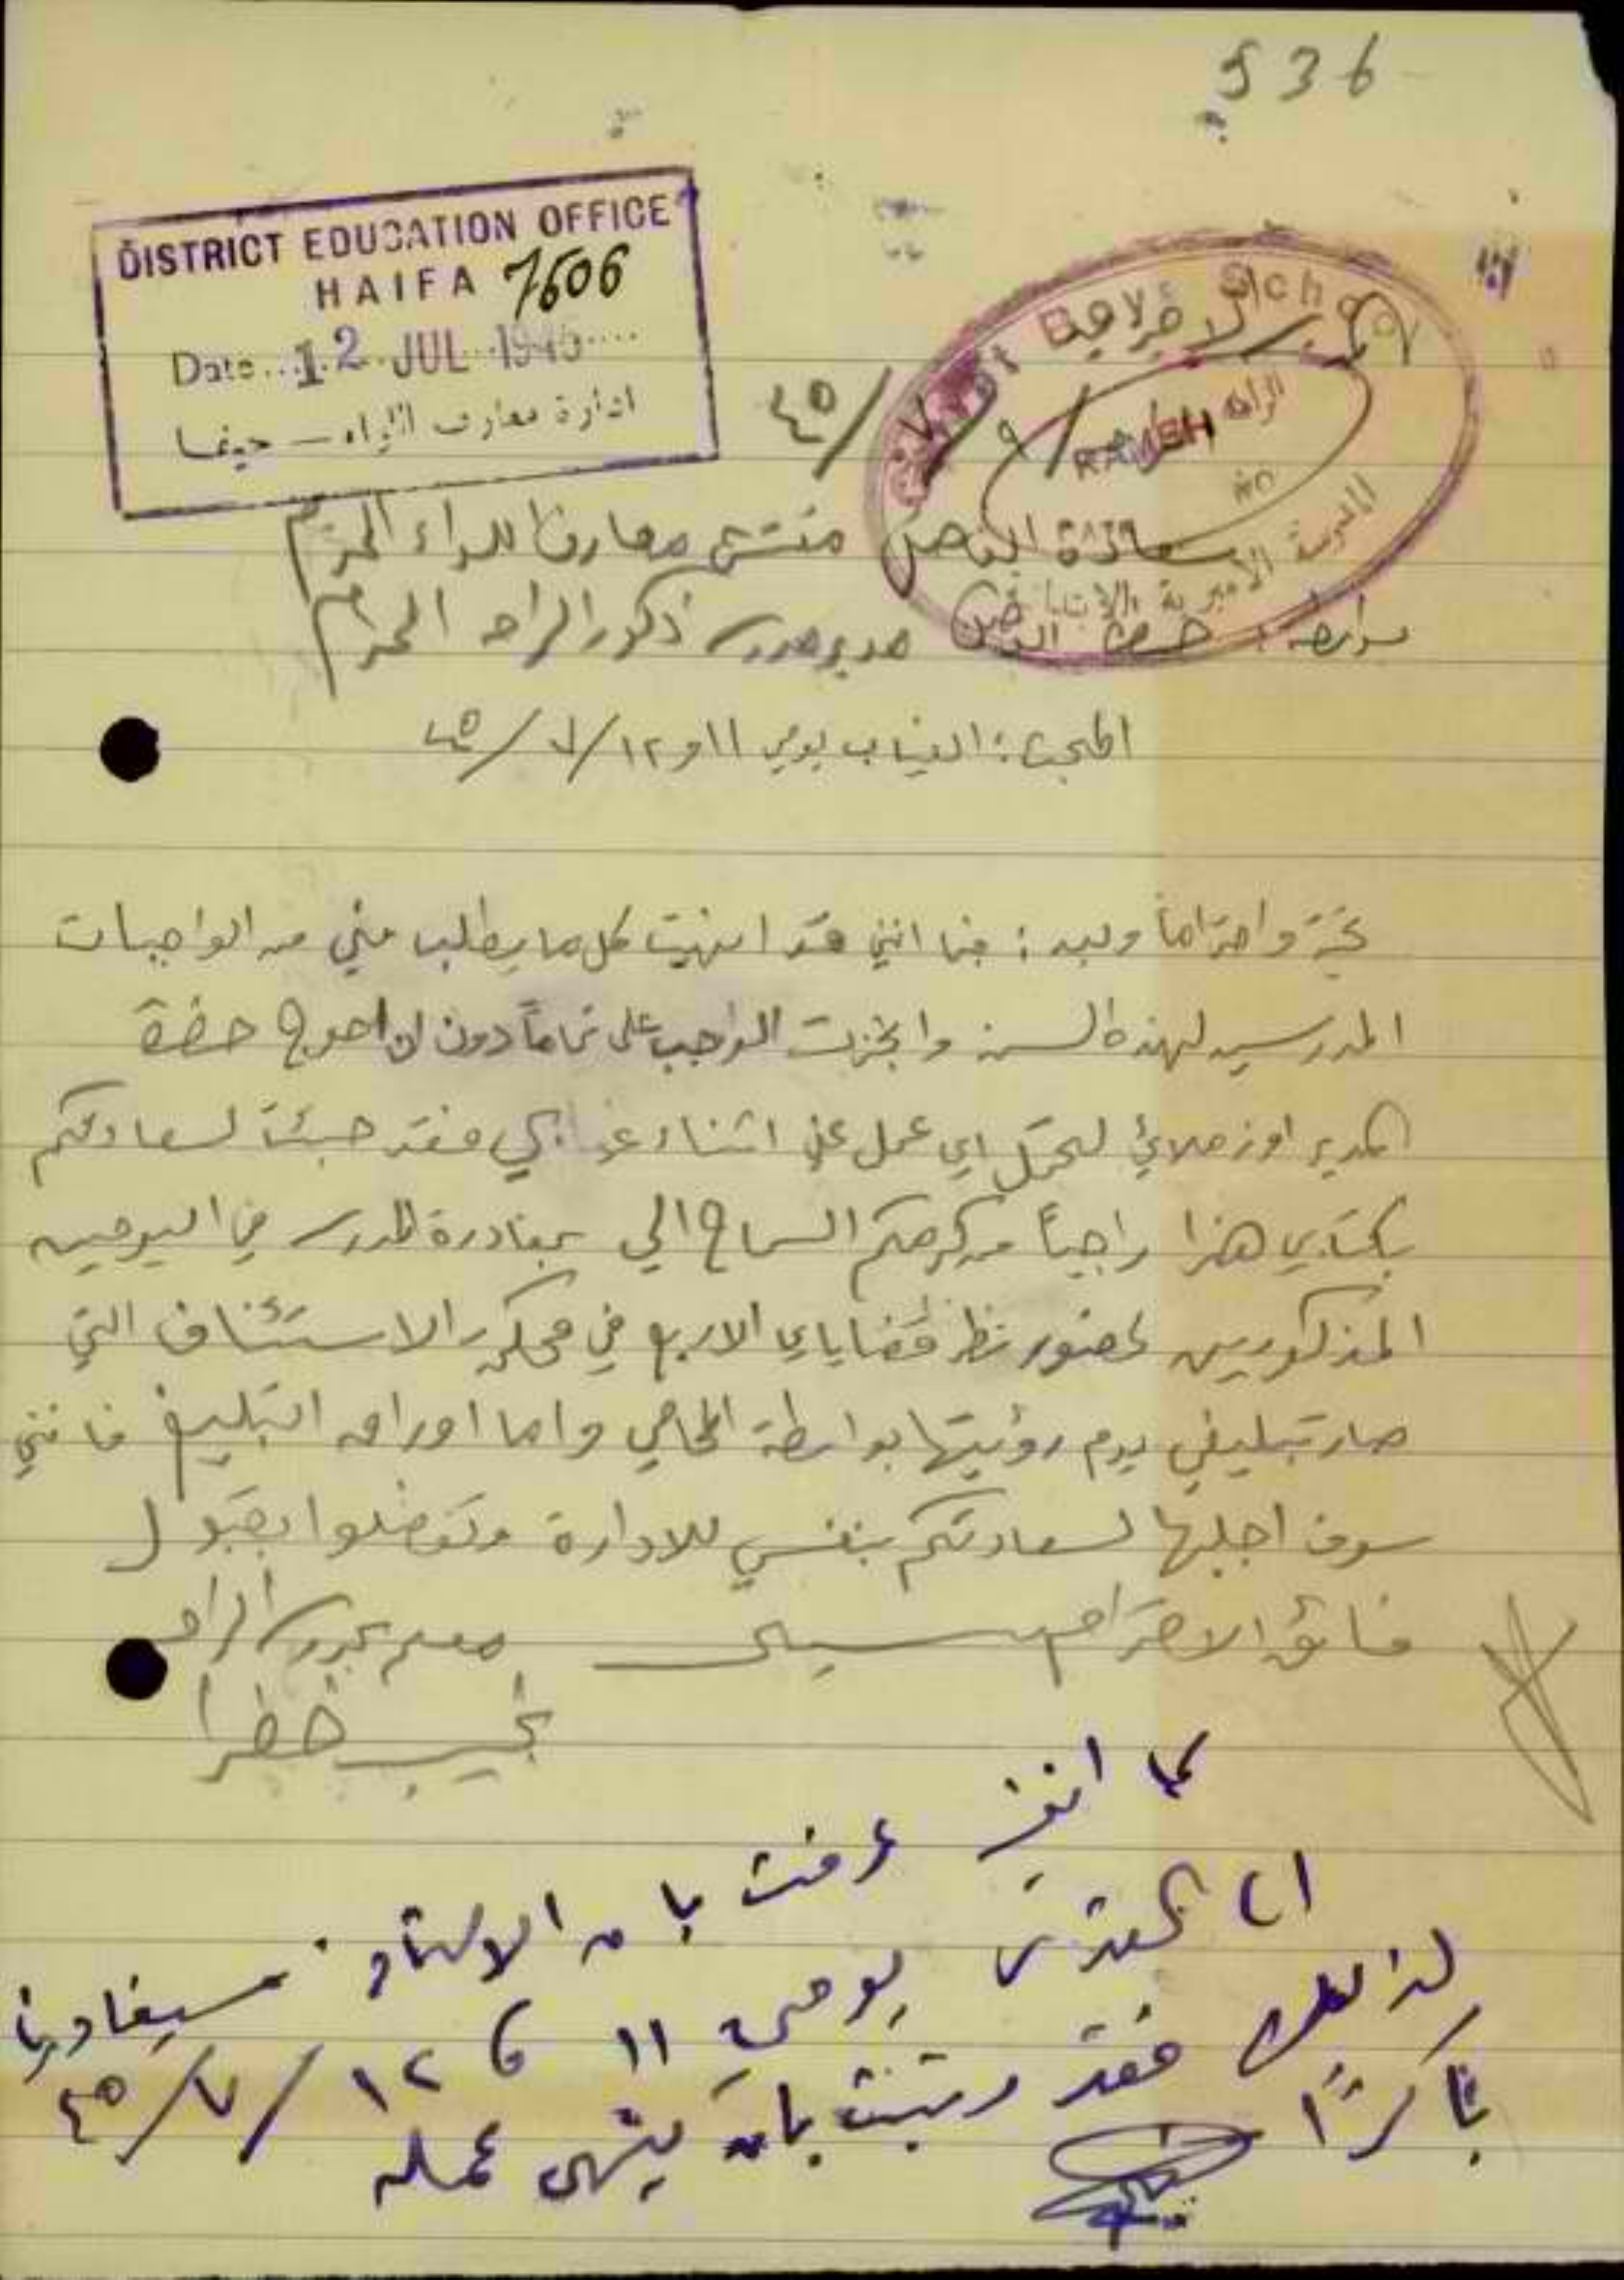 536
DISTRICT EDUCATION OFFICE
HAIFA 7606
Date 12 JUL 1945
ادارة معارف اللواء - حيفا
Boys School
RAMEH
الرامه
المدرسة الاميرية
٩/٧/٤٥
سعادة الفاضل مفتش معارف اللواء المحترم
بواسطة: حضرة الفاضل مدير مدرسة ذكور الرامه المحترم
المبحث: الغياب يومي ١١ و ١٢/٧/٤٥
تحية واحتراماً وبعد: فبما انني قد انهيت كل ما يطلب مني من الواجبات
المدرسيه لهذه السنه وانجزت الواجب علي تماماً دون ان احوج حضرة
المدير او زملائي لتحمل اي عمل عني اثناء غيابي فقد جئت لسعادتكم
بكتابي هذا راجياً من كرمكم السماح الي بمغادرة المدرسه في اليومين
المذكورين لحضور نظر قضاياي الاربع في محكمة الاستئناف التي
صار تبليغي يوم رؤيتها بواسطة المحامي واما اوراق التبليغ فانني
سوف اجلبها لسعادتكم بنفسي للادارة وتفضلوا بقبول
فائق الاحترام سيدي معلم بمدرسة الرامه
نجيب خطرا
كما انني عرفت بان الاستاذ سيغادرنا
الى القدس يومي ١١ و ١٢/٧/٤٥
لذلك فقد رتبت بان ينهي عمله
باكرًا